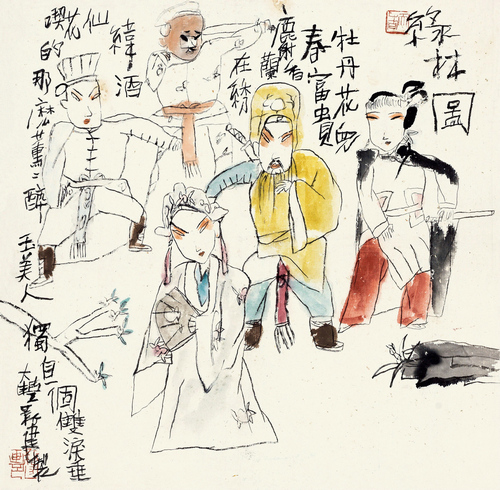 綠林
圖
牡丹花兒
春富貴
麝蘭香
在綉
緯酒
仙花
喫的那麼薰〻醉
玉美人
獨自一個雙淚垂